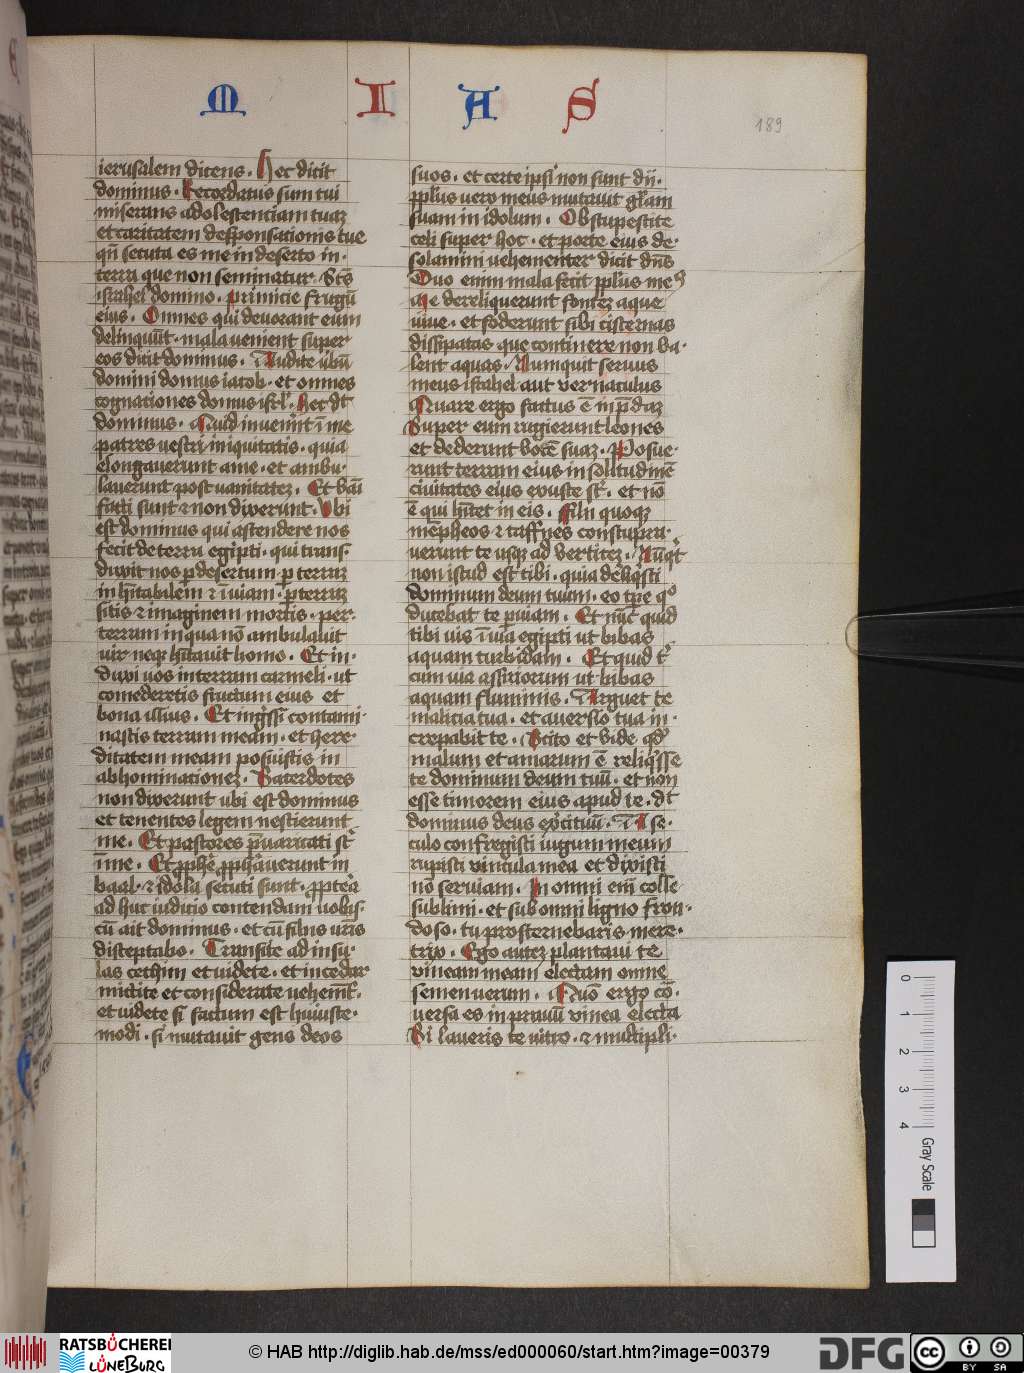 M I A S
189
ierusalem dicens . Hec dicit
dominus . Recordatus sum tui
miserans adolescenciam tuaȝ
et caritatem desponsationis tue
qn̄ secuta es me in deserto in·
terra que non seminatur . Sc̄s
israhel domino . primicie frugū
eius . Omnes qui devorant eum
delinquūt . mala venient super
eos dicit dominus . Audite ūbū
domini domus iacob . et omnes
cognationes domus isrl̓ . Hec dt̄
dominus . Quid invenerūt ī me
patres vestri iniquitatis . quia
elongaverunt a me . et ambu·
laverunt post vanitateȝ . Et vāi
facti sunt ⁊ non dixerunt . Vbi
est dominus qui ascendere nos
fecit de terra egipti . qui trans·
duxit nos ꝑ desertum . ꝑ terraȝ
in hītabilem ⁊ īviam . ꝑ terraȝ
sitis ⁊ imaginem mortis . per·
terram in qua nō ambulavit
vir neqȝ hītavit homo . Et in·
duxi vos in terram carmeli . ut
comederetis fructum eius et
bona illius . Et ingr̄ssi contami·
nastis terram meam . et here·
ditatem meam posuistis in
abhominationeȝ . Sacerdotes
non dixerunt ubi est dominus
et tenentes legem nescierunt
me . Et pastores p̄varicati st̄
ī me . Et ꝓphē ꝓphāverunt in
baal . ⁊ idola secuti sunt . ꝓpterea
ad huc iudicio contendam vobis·
cū ait dominus . et cū filiis vr̄is
disceptabo . Transite ad insu·
las cethim et videte . et in cedar
mittite et considerate vehemt̄·
et videte si factum est huiusce·
modi . si mutavit gens deos
suos . et certe ipsi non sunt dij .
pp̄lus vero meus mutavit gl̄am
suam in idolum . Obstupescite
celi super hoc . et porte eius de·
solamini vehementer dicit dn̄s
Duo enim mala fecit pp̄lus meꝰ
Me dereliquerunt fonteȝ aque
vive . et foderunt sibi cisternas
dissipatas que continere non va·
lent aquas . Numquit servus
meus israhel aut vernaculus
Quare ergo factus ē in p̄daȝ
Super eum rugierunt leones
et dederunt vocē suaȝ . Posue·
runt terram eius in solitudinē
civitates eius exuste st̄ . et nō
ē qui hītet in eis . Filii quoqȝ
mēpheos ⁊ taffnes constupra·
verunt te usqȝ ad verticeȝ . Nūqt̄
non istud est tibi . quia derliqisti
dominum deum tuum . eo tp̄e qͦ
ducebat te ꝑ viam . Et nūc quid
tibi vis ī via egipti ut bibas
aquam turbidam . Et quid t̄
cum via assiriorum ut bibas
aquam fluminis . Arguet te
malicia tua . et aversio tua in·
crepabit te . Scito et vide qd̓
malum et amarum ē reliqisse
te dominum deum tuū . et non
esse timorem eius apud te . dt̄
dominus deus exercituū . A se·
culo confregisti iugum meum
rupisti vincula mea et dixisti
nō serviam . In omni eni colle
sublimi . et sub omni ligno fron·
doso . tu prosternebaris mere·
trix . Ego auteȝ plantavi te
vineam meam electam omne
semen verum . Quō ergo cō·
versa es in pravū vinea electa
Si laveris te nitro . ⁊ multipli·
0 1 2 3 4
Gray Scale
RATSBÜCHEREI
LÜNEBURG
© HAB http://diglib.hab.de/mss/ed000060/start.htm?image=00379
DFG
cc BY SA